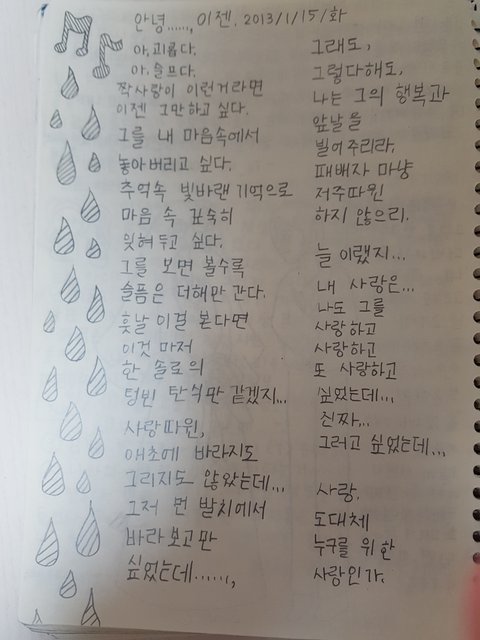 안녕......, 이젠. 2013/1/15/화
아, 괴롭다.
아, 슬프다.
짝사랑이 이런거라면
이젠 그만하고 싶다.
그를 내 마음속에서
놓아버리고 싶다.
추억속 빛바랜 기억으로
마음 속 깊숙히
잊혀두고 싶다.
그를 보면 볼수록
슬픔은 더해만 간다.
훗날 이걸 본다면
이것 마저
한 솔로의
텅빈 탄식만 같겠지...
사랑따윈,
애초에 바라지도
그리지도 않았는데...
그저 먼 발치에서
바라보고만
싶었는데......,
그래도,
그렇다해도,
나는 그의 행복과
앞날을
빌어주리라.
패배자 마냥
저주따윈
하지 않으리.
늘 이랬지...
내 사랑은...
나도 그를
사랑하고
사랑하고
또 사랑하고
싶었는데...
진짜...
그러고 싶었는데...
사랑.
도대체
누구를 위한
사랑인가.